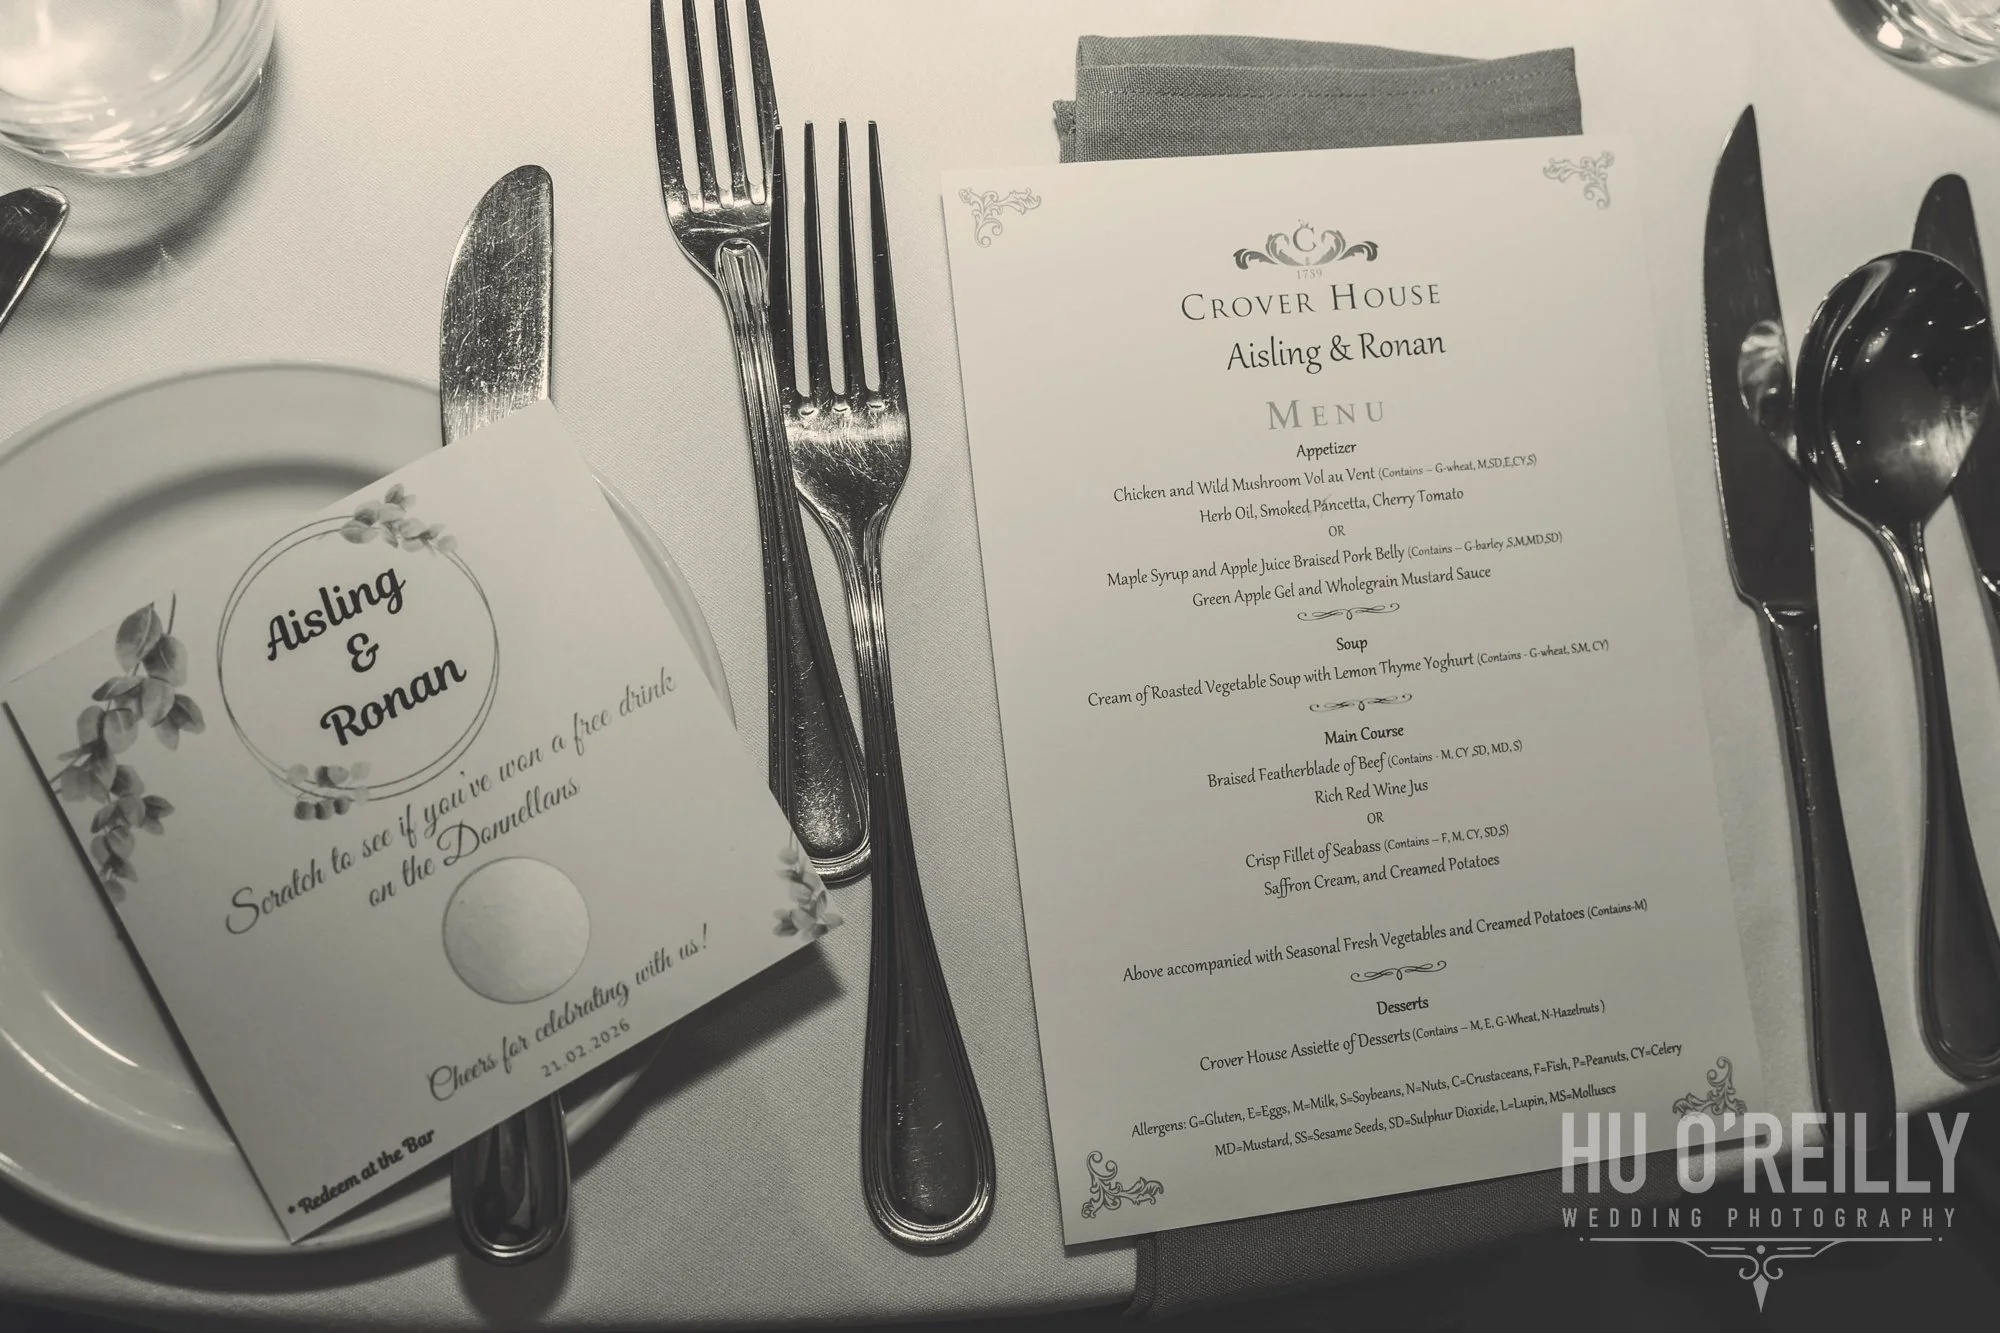 Aisling
&
Ronan
Scratch to see if you've won a free drink
on the Donnellans
Cheers for celebrating with us!
21.02.2026
* Redeem at the Bar
C
1759
CROVER HOUSE
Aisling & Ronan
MENU
Appetizer
Chicken and Wild Mushroom Vol au Vent (Contains – G-wheat, M,SD,E,CY,S)
Herb Oil, Smoked Pancetta, Cherry Tomato
OR
Maple Syrup and Apple Juice Braised Pork Belly (Contains – G-barley ,S,M,MD,SD)
Green Apple Gel and Wholegrain Mustard Sauce
Soup
Cream of Roasted Vegetable Soup with Lemon Thyme Yoghurt (Contains - G-wheat, S,M, CY)
Main Course
Braised Featherblade of Beef (Contains - M, CY ,SD, MD, S)
Rich Red Wine Jus
OR
Crisp Fillet of Seabass (Contains – F, M, CY, SD,S)
Saffron Cream, and Creamed Potatoes
Above accompanied with Seasonal Fresh Vegetables and Creamed Potatoes (Contains-M)
Desserts
Crover House Assiette of Desserts (Contains – M, E, G-Wheat, N-Hazelnuts )
Allergens: G=Gluten, E=Eggs, M=Milk, S=Soybeans, N=Nuts, C=Crustaceans, F=Fish, P=Peanuts, CY=Celery
MD=Mustard, SS=Sesame Seeds, SD=Sulphur Dioxide, L=Lupin, MS=Molluscs
HU O'REILLY
WEDDING PHOTOGRAPHY